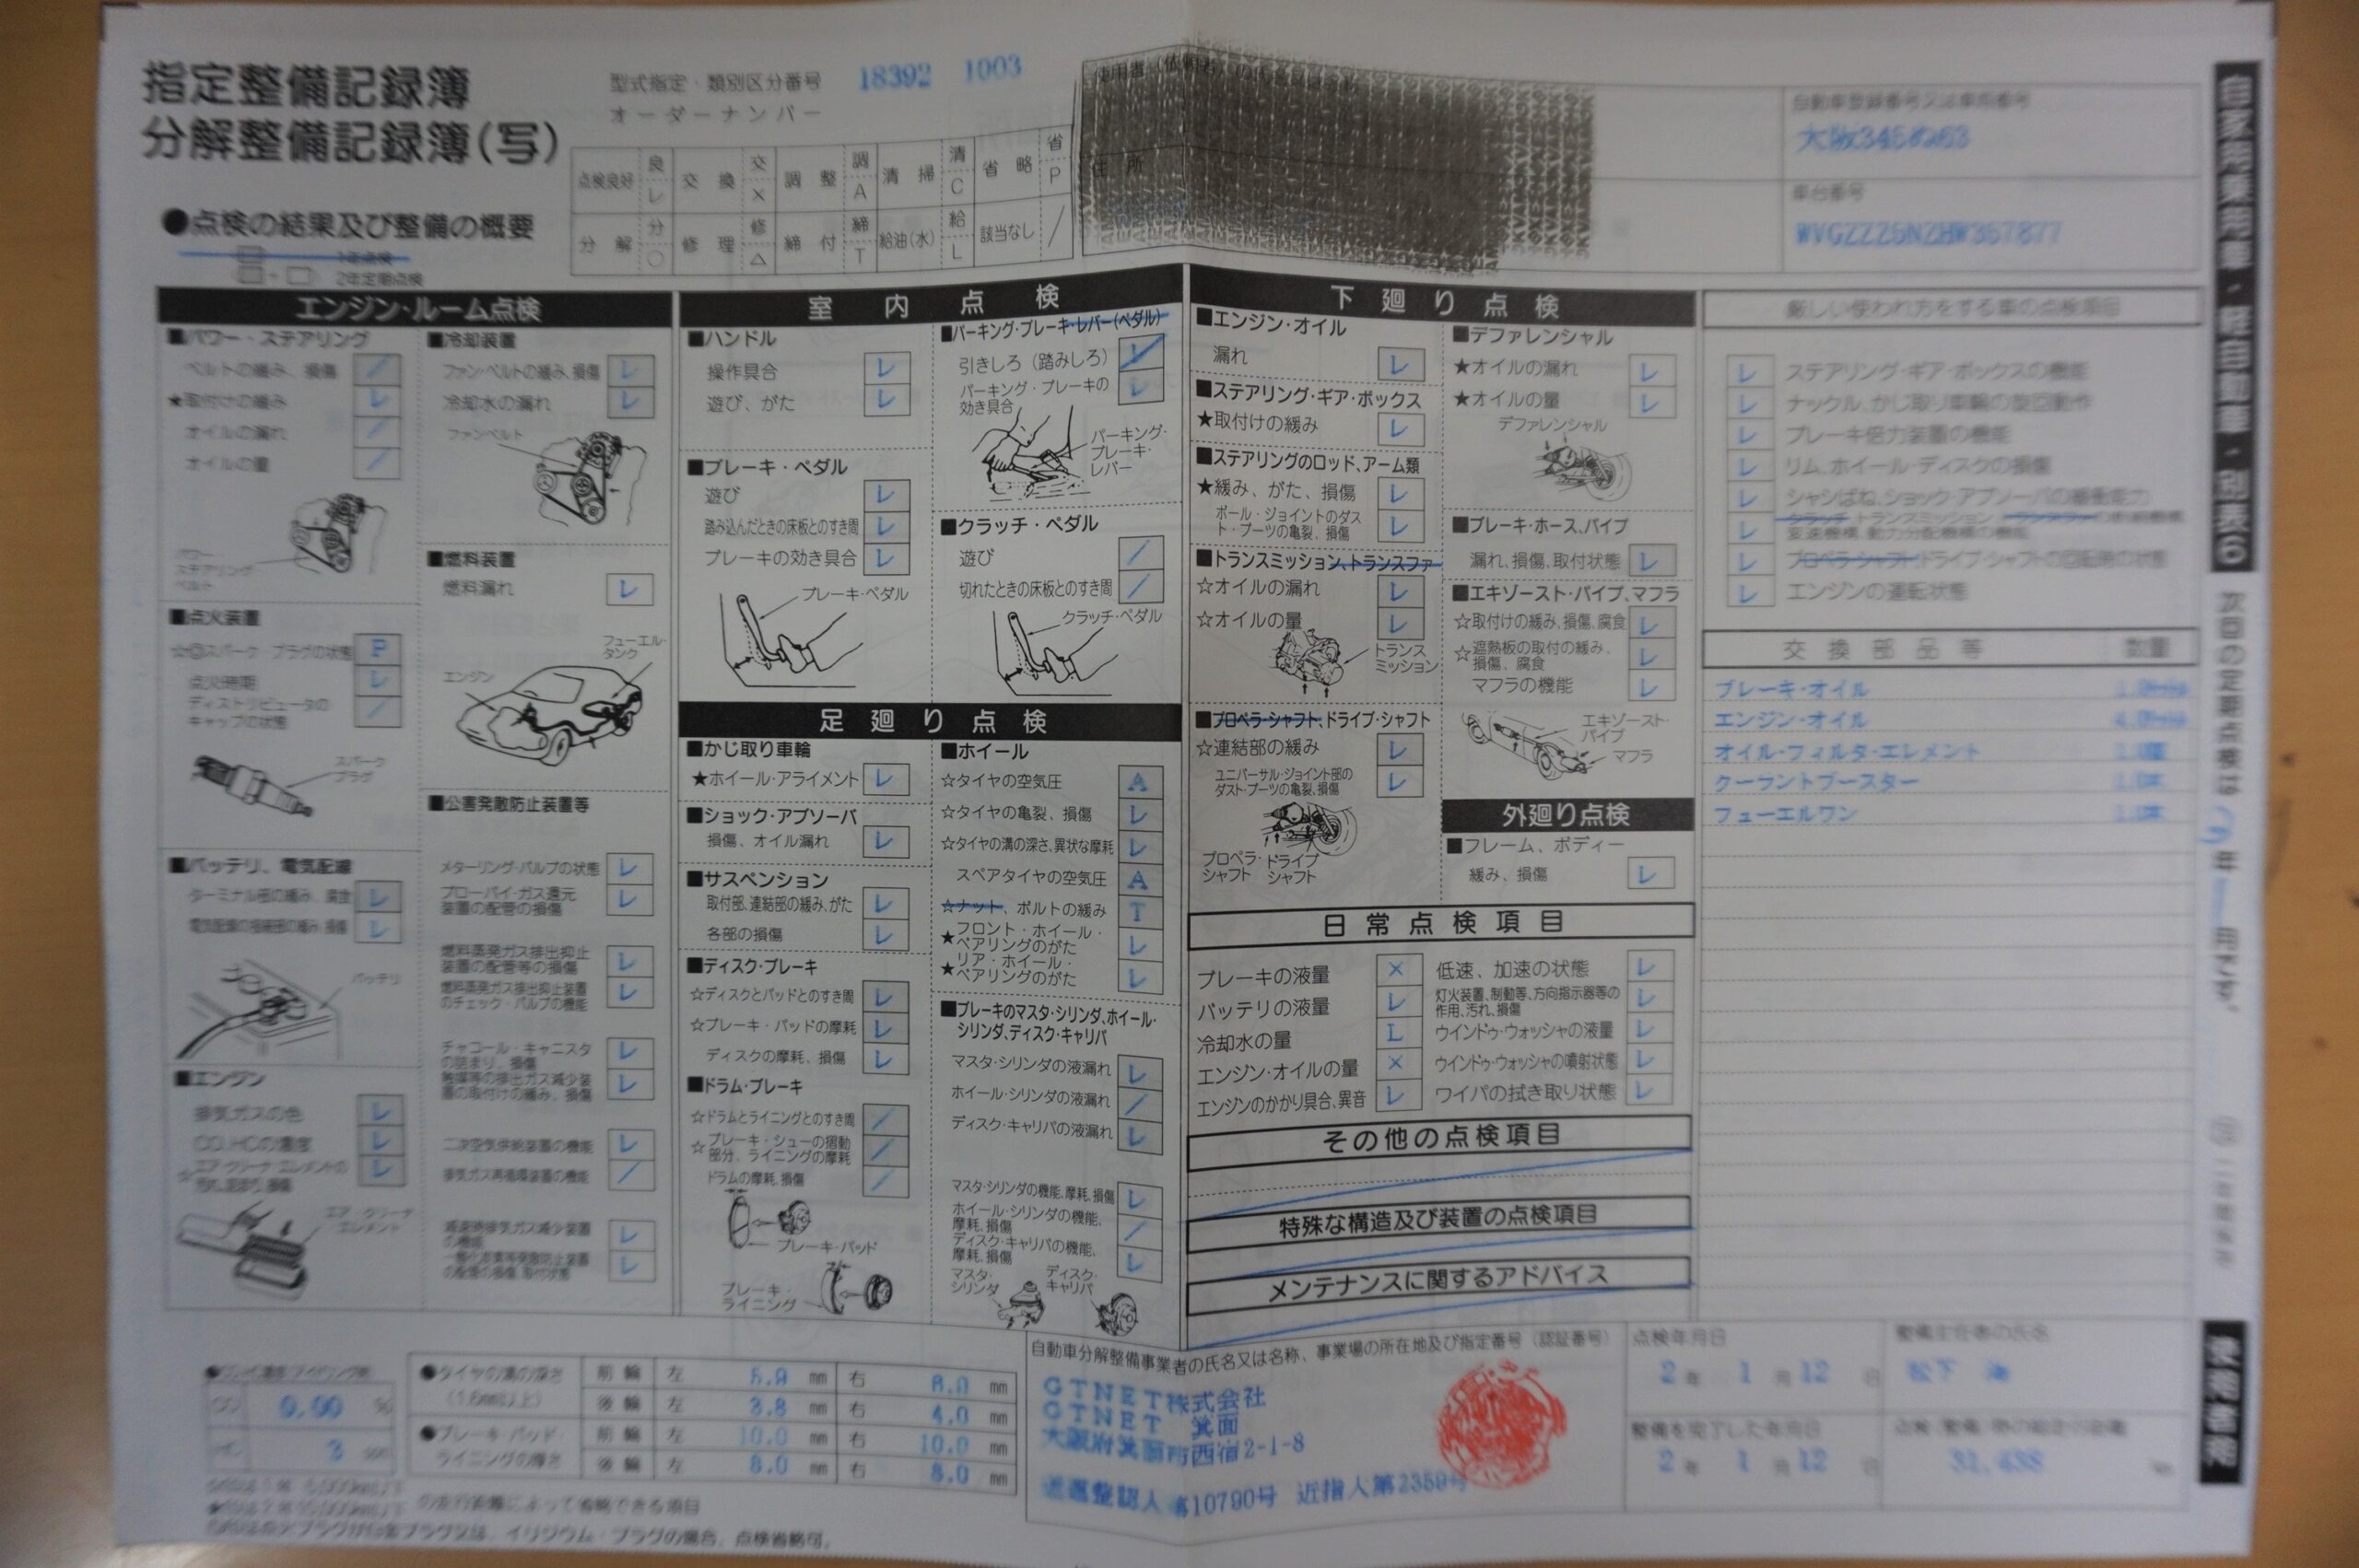 指定整備記録簿
分解整備記録簿(写)
型式指定・類別区分番号 18392 1003
オーダーナンバー
点検良好 良 レ 交換 交 × 調整 調 A 清掃 清 C 省略 省 P
分解 分 ○ 修理 修 △ 締付 締 T 給油(水) 給 L 該当なし /
住所
自動車登録番号又は車両番号
車台番号
●点検の結果及び整備の概要
1年点検
2年定期点検
自家用乗用車・軽自動車・別表6
次回の定期点検は
年
月です。
エンジン・ルーム点検
■パワー・ステアリング
ベルトの緩み、損傷 /
★取付けの緩み レ
オイルの漏れ /
オイルの量 /
パワー
ステアリング
ベルト
■点火装置
スパーク・プラグの状態 P
点火時期 レ
ディストリビュータの
キャップの状態 /
スパーク
プラグ
■バッテリ、電気配線
ターミナル部の緩み、腐食 レ
電気配線の接続部の緩み、損傷 レ
バッテリ
■エンジン
排気ガスの色 レ
CO、HCの濃度 レ
エア・クリーナ
エレメント
■冷却装置
ファン・ベルトの緩み、損傷 レ
冷却水の漏れ レ
ファンベルト
■燃料装置
燃料漏れ レ
フューエル・
タンク
エンジン
■公害発散防止装置等
メターリング・バルブの状態 レ
ブローバイ・ガス還元
装置の配管の損傷 レ
燃料蒸発ガス排出抑止
装置の配管等の損傷 レ
燃料蒸発ガス排出抑止装置
のチェック・バルブの機能 レ
チャコール・キャニスタ
の詰まり、損傷 レ
触媒等の排出ガス減少装
置の取付けの緩み、損傷 レ
二次空気供給装置の機能 レ
排気ガス再循環装置の機能 /
減速時排気ガス減少装置
の機能 レ
一酸化炭素等発散防止装置
の配管の損傷、取付状態 レ
室内点検
■ハンドル
操作具合 レ
遊び、がた レ
■ブレーキ・ペダル
遊び レ
踏み込んだときの床板とのすき間 レ
ブレーキの効き具合 レ
ブレーキ・ペダル
■パーキング・ブレーキ・レバー(ペダル)
引きしろ(踏みしろ) レ
パーキング・ブレーキの
効き具合 レ
パーキング・
ブレーキ・
レバー
■クラッチ・ペダル
遊び /
切れたときの床板とのすき間 /
クラッチ・ペダル
足廻り点検
■かじ取り車輪
★ホイール・アライメント レ
■ショック・アブソーバ
損傷、オイル漏れ レ
■サスペンション
取付部、連結部の緩み、がた レ
各部の損傷 レ
■ディスク・ブレーキ
☆ディスクとパッドとのすき間 レ
☆ブレーキ・パッドの摩耗 レ
ディスクの摩耗、損傷 レ
■ドラム・ブレーキ
☆ドラムとライニングとのすき間 /
☆ブレーキ・シューの摺動
部分、ライニングの摩耗 /
ドラムの摩耗、損傷 /
ブレーキ・パッド
ブレーキ・
ライニング
■ホイール
☆タイヤの空気圧 A
☆タイヤの亀裂、損傷 レ
☆タイヤの溝の深さ、異状な摩耗 レ
スペアタイヤの空気圧 A
☆ナット、ボルトの緩み T
★フロント・ホイール・
ベアリングのがた レ
★リア・ホイール・
ベアリングのがた レ
■ブレーキのマスタ・シリンダ、ホイール・
シリンダ、ディスク・キャリパ
マスタ・シリンダの液漏れ レ
ホイール・シリンダの液漏れ /
ディスク・キャリパの液漏れ レ
マスタ・シリンダの機能、摩耗、損傷 レ
ホイール・シリンダの機能、
摩耗、損傷 /
ディスク・キャリパの機能、
摩耗、損傷 レ
マスタ・
シリンダ
ディスク・
キャリパ
下廻り点検
■エンジン・オイル
漏れ レ
■ステアリング・ギア・ボックス
★取付けの緩み レ
■ステアリングのロッド、アーム類
★緩み、がた、損傷 レ
ボール・ジョイントのダス
ト・ブーツの亀裂、損傷 レ
■トランスミッション、トランスファー
☆オイルの漏れ レ
☆オイルの量 レ
トランス
ミッション
■プロペラ・シャフト、ドライブ・シャフト
☆連結部の緩み レ
ユニバーサル・ジョイント部の
ダスト・ブーツの亀裂、損傷 レ
プロペラ・
シャフト
ドライブ
シャフト
■デファレンシャル
★オイルの漏れ レ
★オイルの量 レ
デファレンシャル
■ブレーキ・ホース、パイプ
漏れ、損傷、取付状態 レ
■エキゾースト・パイプ、マフラ
☆取付けの緩み、損傷、腐食 レ
☆遮熱板の取付の緩み、
損傷、腐食 レ
マフラの機能 レ
エキゾースト・
パイプ
マフラ
外廻り点検
■フレーム、ボディー
緩み、損傷 レ
日常点検項目
ブレーキの液量 ×
バッテリの液量 レ
冷却水の量 L
エンジン・オイルの量 ×
エンジンのかかり具合、異音 レ
低速、加速の状態 レ
灯火装置、制動等、方向指示器等の
作用、汚れ、損傷 レ
ウインドゥ・ウォッシャの液量 レ
ウインドゥ・ウォッシャの噴射状態 レ
ワイパの拭き取り状態 レ
その他の点検項目
特殊な構造及び装置の点検項目
メンテナンスに関するアドバイス
厳しい使われ方をする車の点検項目
レ ステアリング・ギア・ボックスの機能
レ ナックル、かじ取り車輪の旋回動作
レ ブレーキ倍力装置の機能
レ リム、ホイール・ディスクの損傷
レ シャシばね、ショック・アブソーバの緩衝能力
レ プロペラ・シャフト、ドライブ・シャフトの回転時の状態
レ エンジンの運転状態
交換部品等 数量
ブレーキ・オイル
エンジン・オイル
オイル・フィルタ・エレメント
クーラントブースター
フューエルワン
CO 0.00 %
HC 3
●タイヤの溝の深さ
(1.6mm以上)
前輪 左 5.9 mm 右 mm
後輪 左 3.8 mm 右 4.0 mm
●ブレーキ・パッド・
ライニングの厚さ
前輪 左 10.0 mm 右 10.0 mm
後輪 左 8.0 mm 右 8.0 mm
の走行距離によって省略できる項目
イリジウム・プラグの場合、点検省略可。
自動車分解整備事業者の氏名又は名称、事業場の所在地及び指定番号(認証番号)
GTNET株式会社
GTNET 箕面
大阪府箕面市西宿2-1-8
第10790号 近指人第2359号
点検年月日
2年 1月 12日
整備主任者の氏名
整備を完了した年月日
2年 1月 12日
31,438